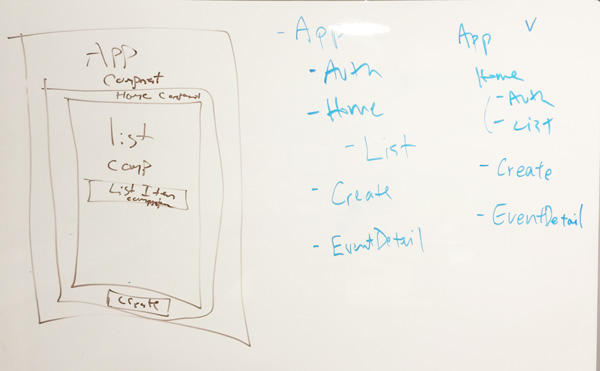 App
Component
Home Component
list
comp
List Item
component
Create
- App
- Auth
- Home
- List
- Create
- EventDetail
App v
Home
- Auth
- List
- Create
- EventDetail